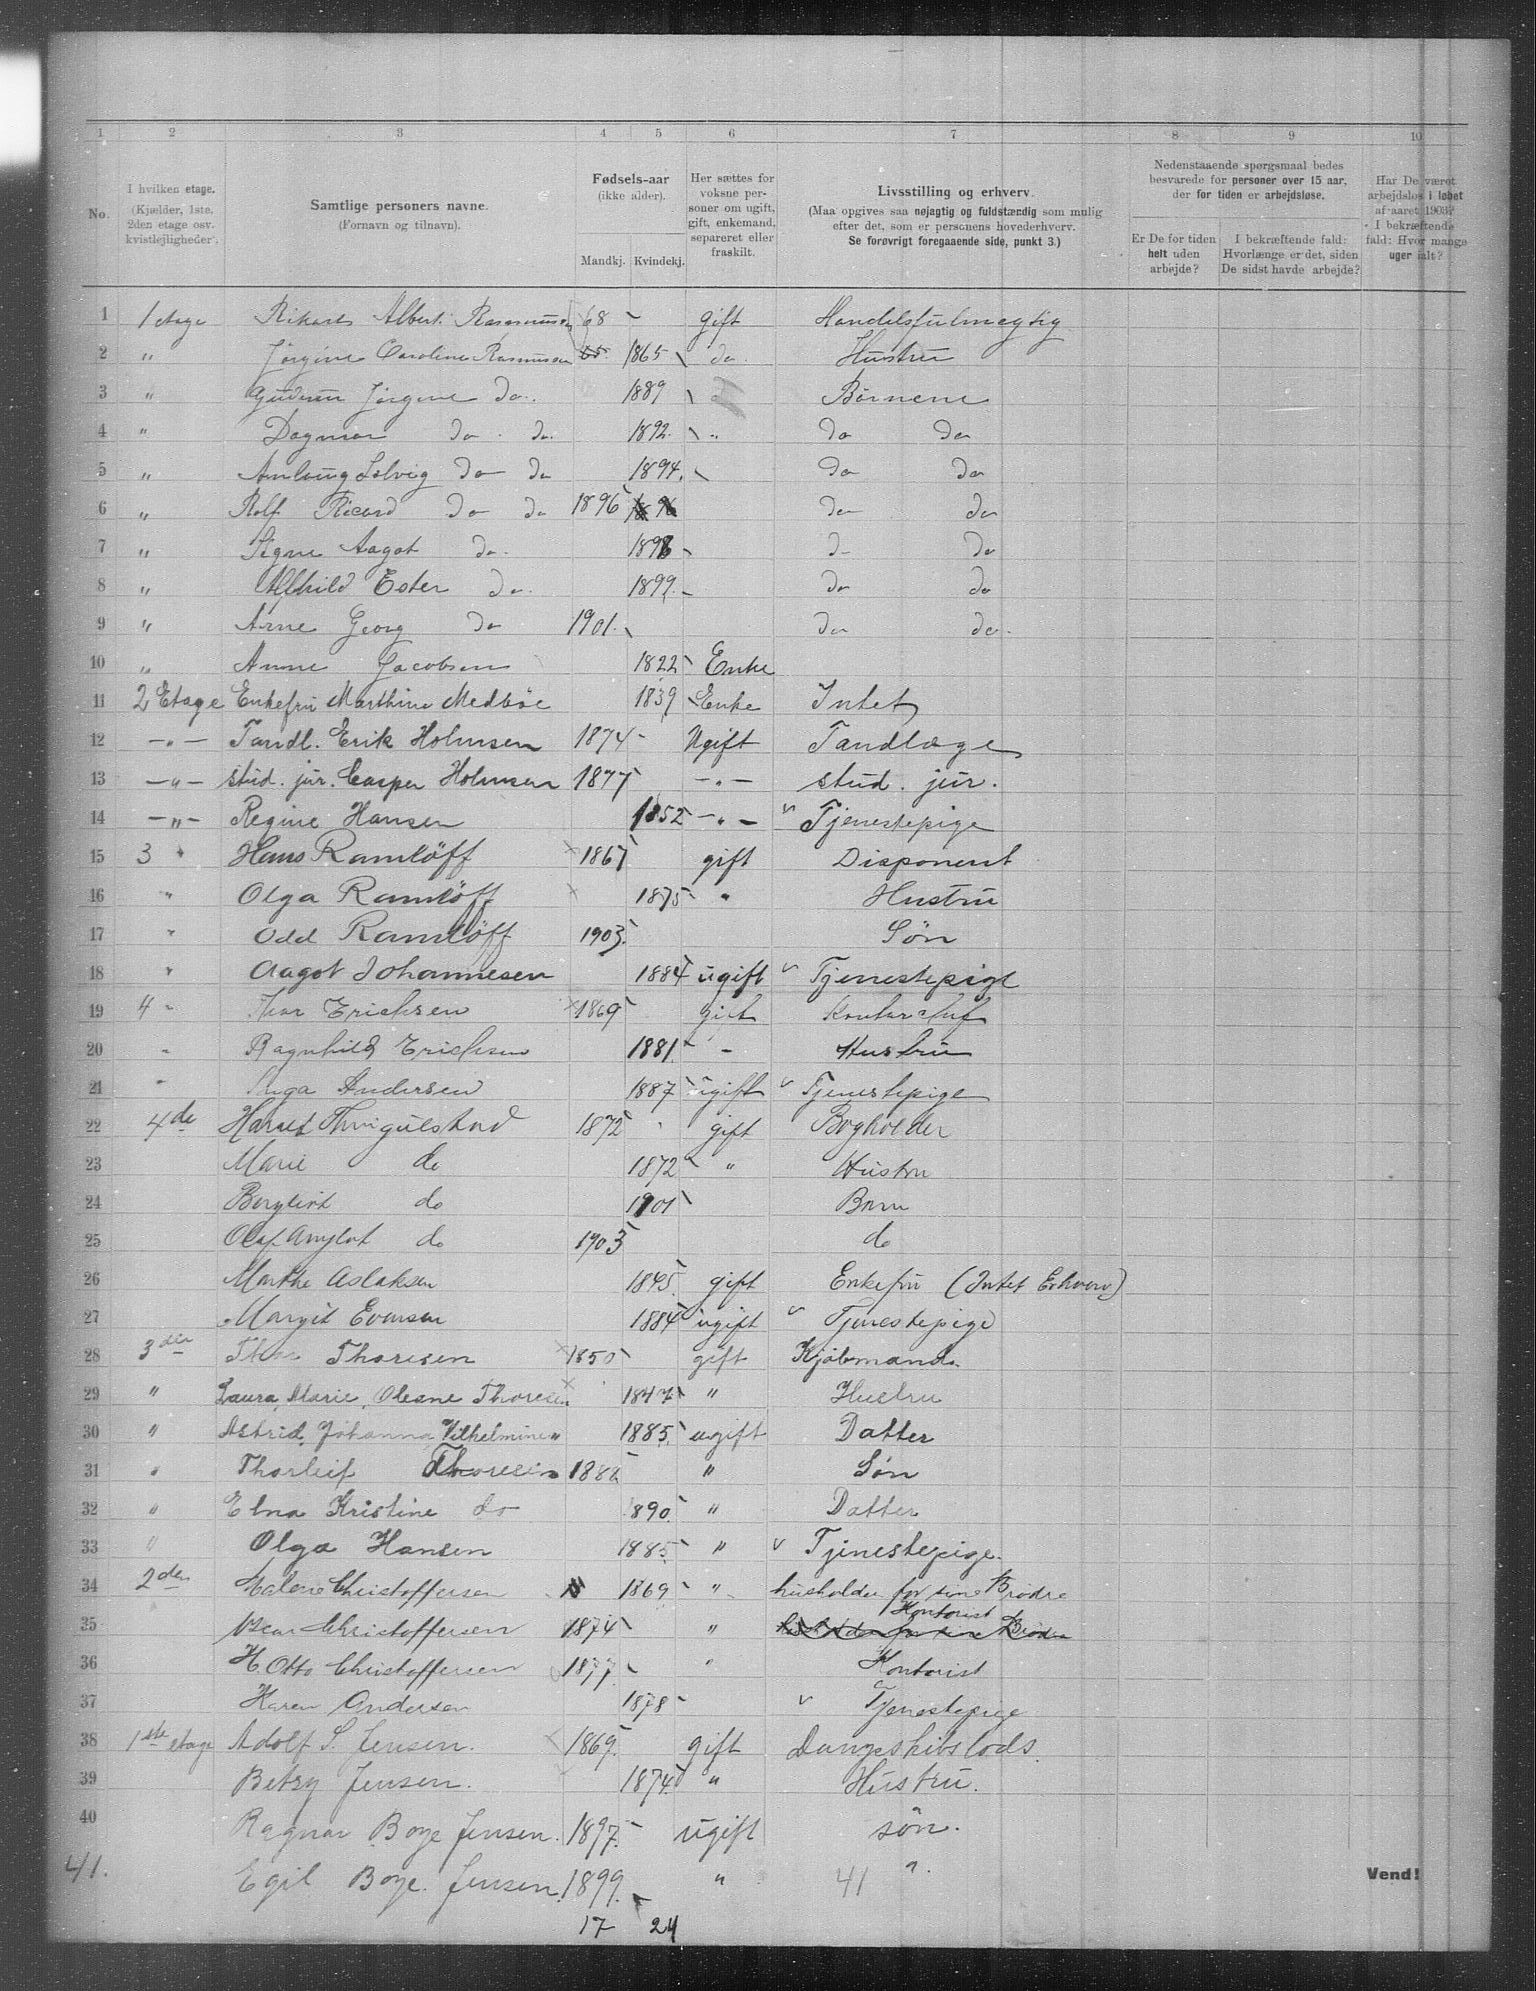 1 2 3 4 5 6 7 8 9 10
No.
I hvilken etage.
(Kjælder, 1ste, 2den etage osv. kvistlejligheder).
Samtlige personers navne.
(Fornavn og tilnavn).
Fødsels-aar
(ikke alder).
Mandkj. Kvindekj.
Her sættes for voksne personer om ugift, gift, enkemand, separeret eller fraskilt.
Livsstilling og erhverv.
(Maa opgives saa nøjagtig og fuldstændig som mulig efter det, som er personens hovederhverv.
Se forøvrigt foregaaende side, punkt 3.)
Nedenstaaende spørgsmaal bedes besvarede for personer over 15 aar, der for tiden er arbejdsløse.
Er De for tiden helt uden arbejde?
I bekræftende fald: Hvorlænge er det, siden De sidst havde arbejde?
Har De været arbejdsløs i løbet af aaret 1903? I bekræftende fald: Hvor mange uger ialt?
1 1 etage Rikart Albert Rasmussen 68 gift Handelsfulmegtig
2 " Jørgine Caroline Rasmussen 65 1865 do. Hustru
3 " Gudrun Jørgine do. 1889 Børnene
4 " Dagmar do. do. 1892 " do do
5 " Solvig do do 1894 do do
6 " Rolf Ricard do do 1896 do do
7 " Signe Aagot do. 1898 d- do
8 " Alfhild Ester do. 1899 do do
9 " Arne Georg do 1901 do do.
10 " Anne Jacobsen 1822 Enke
11 2 Etage Enkefru Marthine Medbøe 1839 Enke Intet
12 -"- Tandl. Erik Holmsen 1874 Ugift Tandlæge
13 -"- stud. jur. Casper Holmsen 1877 -"- stud. jur.
14 -"- Regine Hansen 1852 -"- Tjenestepige
15 3 " Hans Ramlöff 1867 gift Disponent
16 " Olga Ramlöff 1875 " Hustru
17 " Odd Ramlöff 1903 Søn
18 " Aagot Johannesen 1884 ugift Tjenestepige
19 4 " Thor Erichsen 1869 gift Kontorchef
20 " Ragnhild Erichsen 1881 - Hustru
21 " Inga Andersen 1887 ugift Tjenestepige
22 4de Harald 1872 gift Bogholder
23 Marie do 1872 " Hustru
24 Bergliot do 1901 Barn
25 Olaf do 1903 do
26 Marthe Aslaksen 1845 gift Enkefru (Intet Erhverv)
27 Margit Evensen 1884 ugift Tjenestepige
28 3den Thor Thoresen 1850 gift Kjøbmand.
29 " Laura, Marie, Olesne Thoresen 1847 " Hustru
30 " Astrid, Johanna, Vilhelmine " 1885 ugift Datter
31 " Thorleif Thoresen 188 " Søn
32 " Elna Kristine do 1890 " Datter
33 " Olga Hansen 1885 " Tjenestepige.
34 2den Malene Christoffersen 1869 " husholder for sine Brødre
35 Oscar Christoffersen 1874 " Kontorist
36 H. Otto Christoffersen 1877 " Kontorist
37 Karen Andersen 1878 Tjenestepige
38 1ste etage Adolf S. Jensen. 1869. gift Dampskibslods.
39 Betzy Jensen. 1874. " Hustru.
40 Ragnar Boye Jensen. 1897. ugift søn.
41. Egil Boye Jensen. 1899. " 41 ".
Vend!
17 24